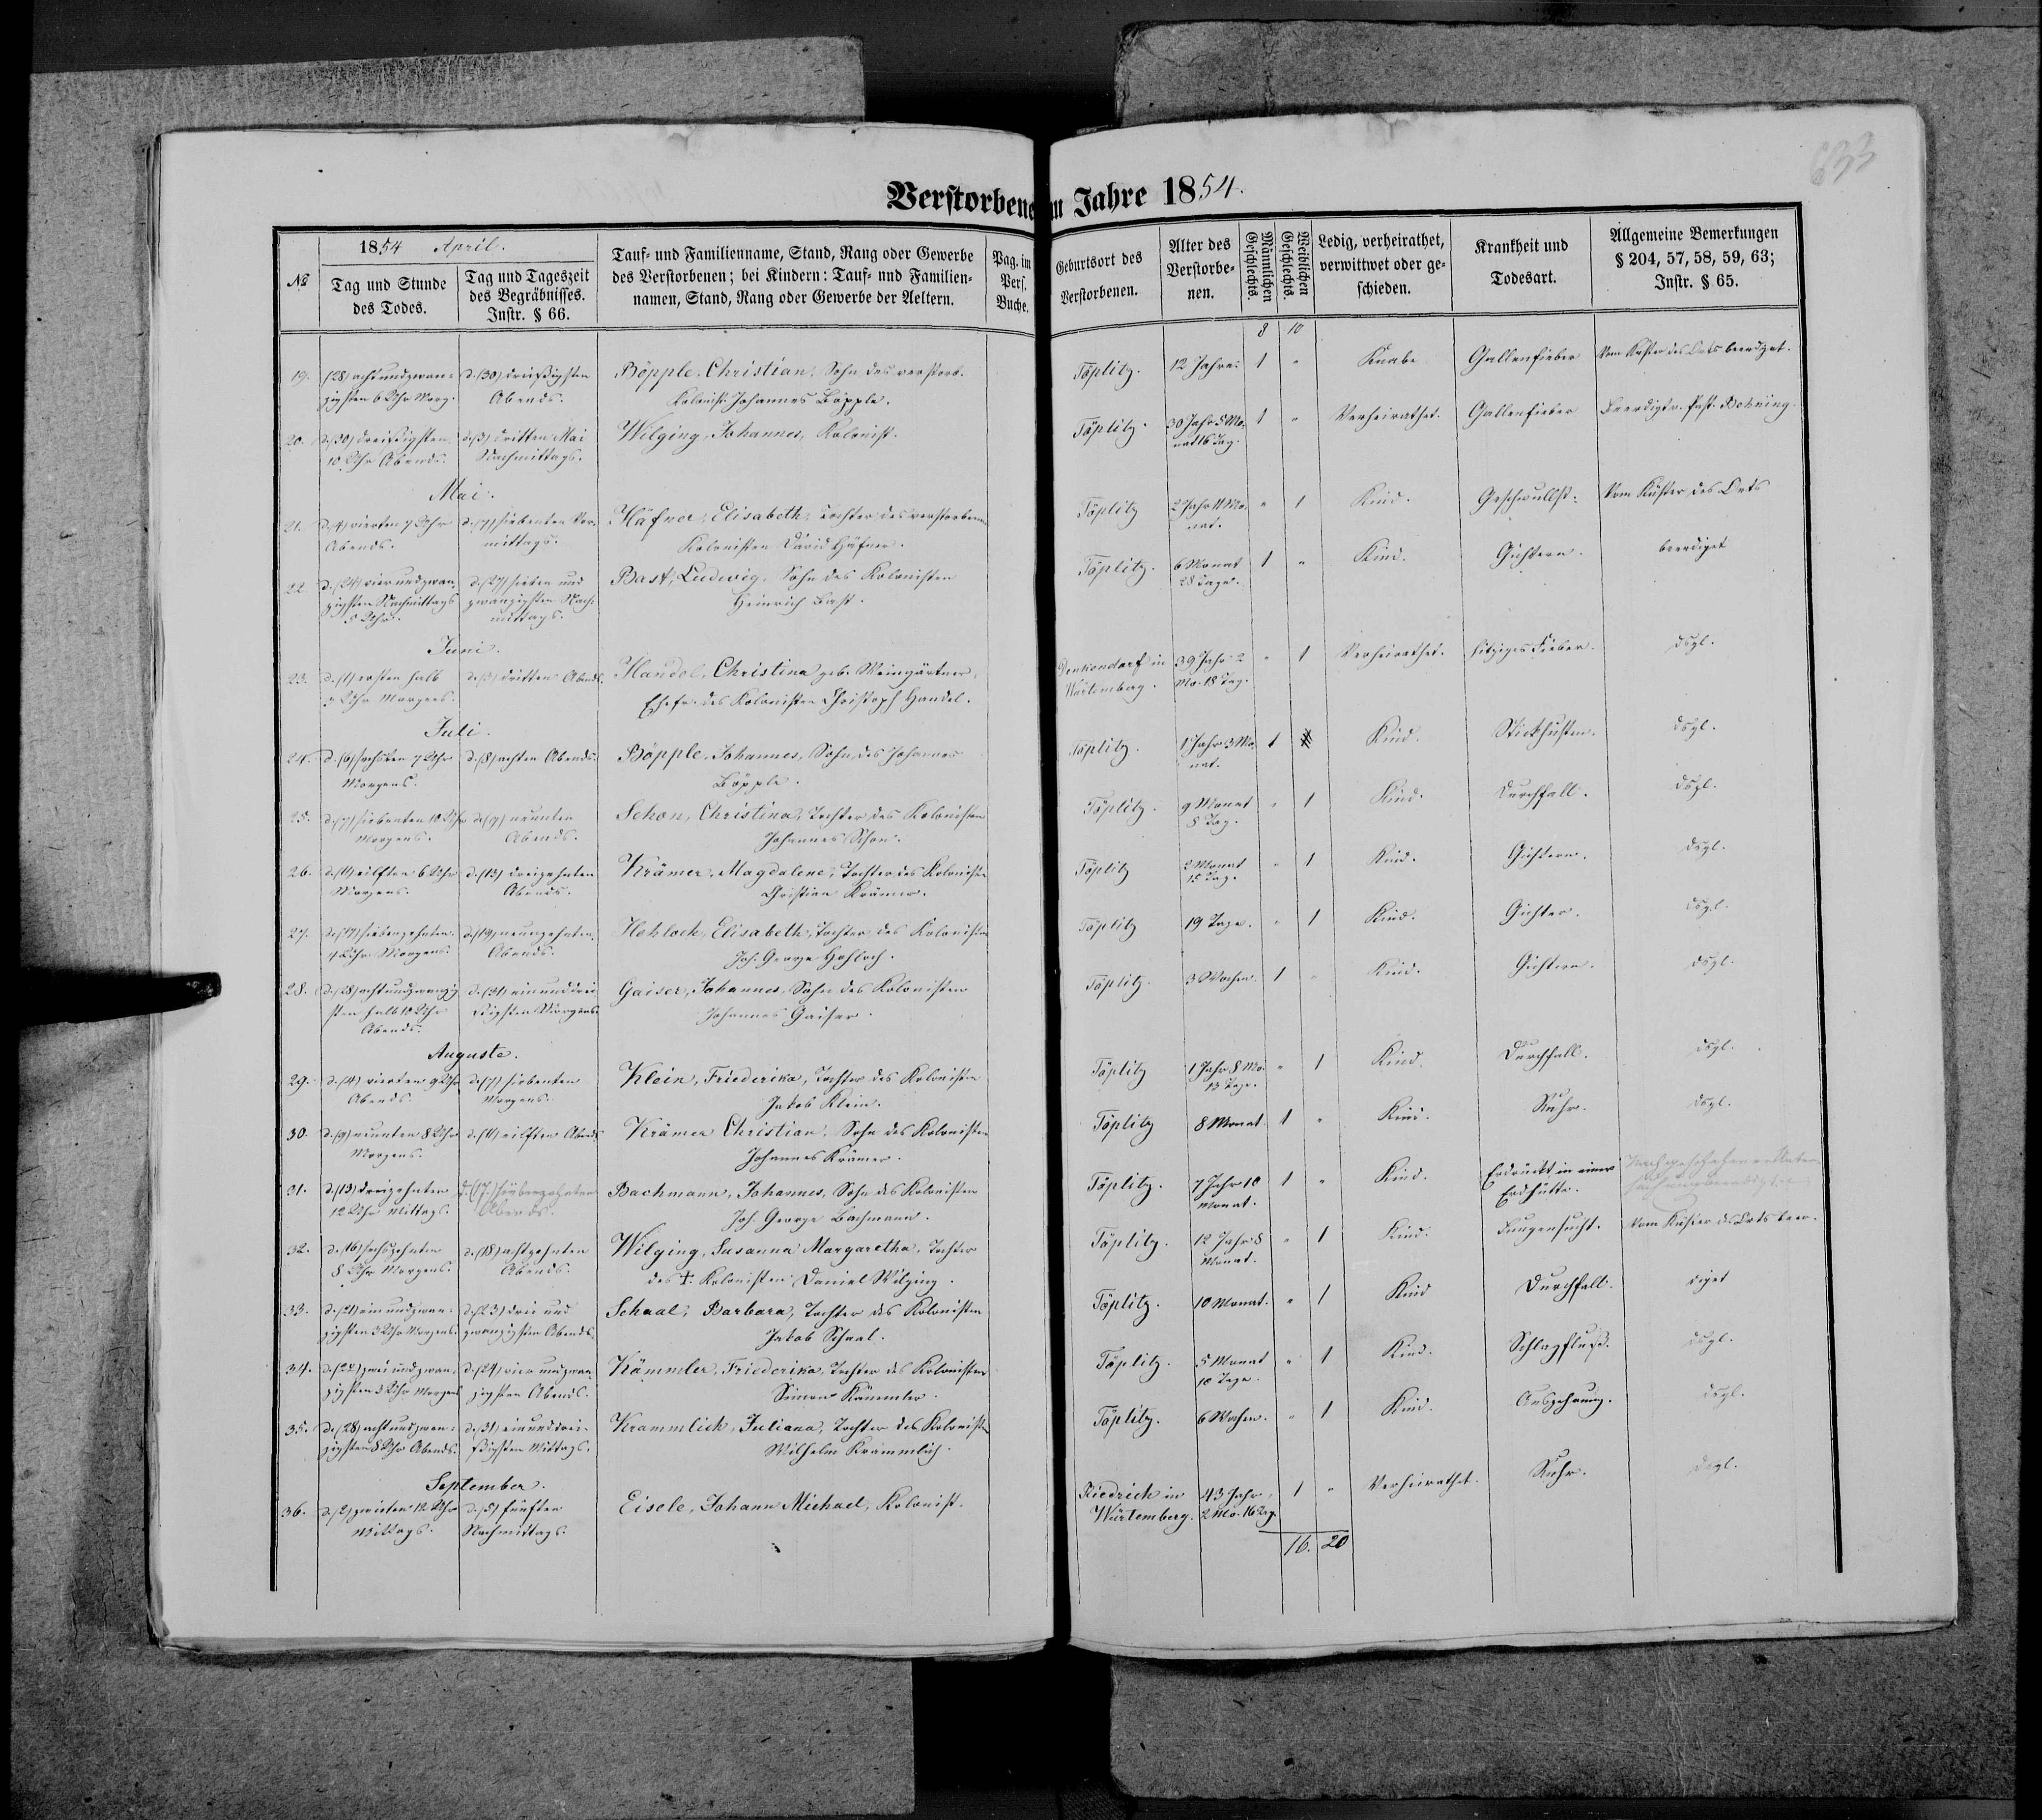 633
Verstorbene im Jahre 1854.
1854 April.
№
Tag und Stunde des Todes.
Tag und Tageszeit des Begräbnisses. Instr. § 66.
Tauf- und Familienname, Stand, Rang oder Gewerbe des Verstorbenen; bei Kindern: Tauf- und Familien-namen, Stand, Rang oder Gewerbe der Aeltern.
Pag. im Pers. Buche.
Geburtsort des Verstorbenen.
Alter des Verstorbe-nen.
Männlichen Geschlechts.
Weiblichen Geschlechts.
Ledig, verheirathet, verwittwet oder ge-schieden.
Krankheit und Todesart.
Allgemeine Bemerkungen § 204, 57, 58, 59, 63; Instr. § 65.
8 10
19. (28) achtundzwan- d. (30) dreißigsten Böpple, Christian, Sohn des verstorb. Töplitz. 12 Jahre. 1 " Knabe Gallenfieber Vom Küster des Orts beerdiget.
zigsten 6 Uhr Morg. Abends. Kolonist. Johannes Böpple.
20. d. (30) dreißigsten d. (3) dritten Mai Wilging, Johannes, Kolonist. Töplitz. 30 Jahr 5 Mo- 1 " Verheirathet. Gallenfieber Beerdigte. Past. Behning.
10 Uhr Abends. Nachmittags. nat 16 Tag.
Mai.
21. d. (4) vierten 7 Uhr d. (7) siebenten Vor- Häfner, Elisabeth, Tochter des verstorbenen Töplitz 2 Jahr 11 Mo- " 1 Kind. Geschwulst. Vom Küster des Orts
Abends. mittags. Kolonisten David Häfner. nat.
22. d. (24) vierundzwan- d. (27) sieben und Bast, Ludwig, Sohn des Kolonisten Töplitz. 6 Monat 1 " Kind. Gichtern. beerdiget
zigsten Nachmittags zwanzigsten Nach- Heinrich Bast. 28 Tage.
5 Uhr. mittags.
Juni.
23. d. (1) ersten halb d. (3) dritten Abends. Handel, Christina geb. Weingärtner, Denkendorf in 39 Jahr 2 " 1 Verheirathet. hitziges Fieber. dsgl.
Uhr Morgens. Ehefr. des Kolonisten Christoph Handel. Würtemberg. Mo. 18 Tag.
Juli.
24. d. (6) sechsten 7 Uhr d. (8) achten Abends. Böpple, Johannes, Sohn des Johannes Töplitz. 1 Jahr 3 Mo- 1 Kind. Stickhusten. dsgl.
Morgens. Böpple. nat.
25. d. (7) siebenten 10 Uhr d. (9) neunten Schon, Christina, Tochter des Kolonisten Töplitz. 9 Monat " 1 Kind. Durchfall. dsgl.
Morgens. Abends. Johannes Schon. 8 Tag.
26. d. (11) eilften 6 Uhr d. (13) dreizehnten Krämer, Magdalene, Tochter des Kolonisten Töplitz 2 Monat " 1 Kind. Gichtern. dsgl.
Morgens. Abends. Christian Krämer. 15 Tag.
27. d. (17) siebenzehnten d. (19) neunzehnten Hohloch, Elisabeth, Tochter des Kolonisten Töplitz 19 Tage. " 1 Kind. Gichter. dsgl.
4 Uhr Morgens. Abends. Joh. George Hohloch.
28. d. (28) achtundzwanzig- d. (31) einunddrei- Gaiser, Johannes, Sohn des Kolonisten Töplitz. 3 Wochen. 1 " Kind. Gichtern. dsgl.
sten halb 10 Uhr ßigsten Morgens. Johannes Gaiser.
Abends.
Auguste.
29. d. (4) vierten 9 Uhr d. (7) siebenten Klein, Friederika, Tochter des Kolonisten Töplitz 1 Jahr 8 Mo. " 1 Kind. Durchfall. dsgl.
Abends. Morgens. Jakob Klein. 13 Tage.
30. d. (9) neunten 8 Uhr d. (11) eilften Abends Krämer Christian, Sohn des Kolonisten Töplitz 8 Monat 1 " Kind. Ruhr. dsgl.
Morgens. Johannes Krämer.
31. d. (13) dreizehnten d. (17.) siebenzehnten Bachmann, Johannes, Sohn des Kolonisten Töplitz. 7 Jahr 10 1 " Kind. Erdrückt in einer Nach geschehener
12 Uhr Mittags. Abends. Joh. George Bachmann. Monat. Erdhütte.
32. d. (16) sechszehnten d. (18) achtzehnten Wilging, Susanna Margaretha, Tochter Töplitz. 12 Jahr 8 " 1 Kind. Lungensucht. Vom Küster d. Orts beer-
8 Uhr Morgens. Abends. des †. Kolonisten Daniel Wilging. Monat.
33. d. (21) einundzwan- d. (23) drei und Schaal, Barbara, Tochter des Kolonisten Töplitz. 10 Monat. " 1 Kind Durchfall. diget
zigsten 3 Uhr Morgens. zwanzigsten Abends. Jakob Schaal.
34. d. (22) zweiundzwan- d. (24) vier undzwan- Kämmler, Friederika, Tochter des Kolonisten Töplitz. 5 Monat " 1 Kind. Schlagfluß. dsgl.
zigsten 3 Uhr Morgens zigsten Abends. Simon Kämmler. 10 Tage.
35. d. (28) achtundzwan- d. (31) einunddrei- Krammlich, Juliana, Tochter des Kolonisten Töplitz. 6 Wochen. " 1 Kind. Auszehrung. dsgl.
zigsten 8 Uhr Abends. ßigsten Mittags. Wilhelm Krammlich.
September.
36. d. (2) zweiten 12 Uhr d. (5) fünften Eisele, Johann Michael, Kolonist. Riedrich in 43 Jahr, 1 " Verheirathet. Ruhr. dsgl.
Mittags. Nachmittags. Würtemberg. 2 Mo. 16 Tag.
16. 20